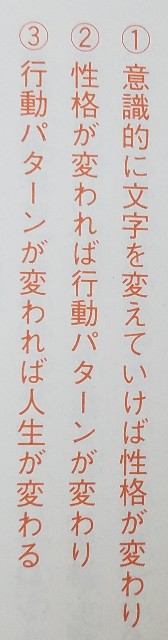 ①意識的に文字を変えていけば性格が変わり
②性格が変われば行動パターンが変わり
③行動パターンが変われば人生が変わる